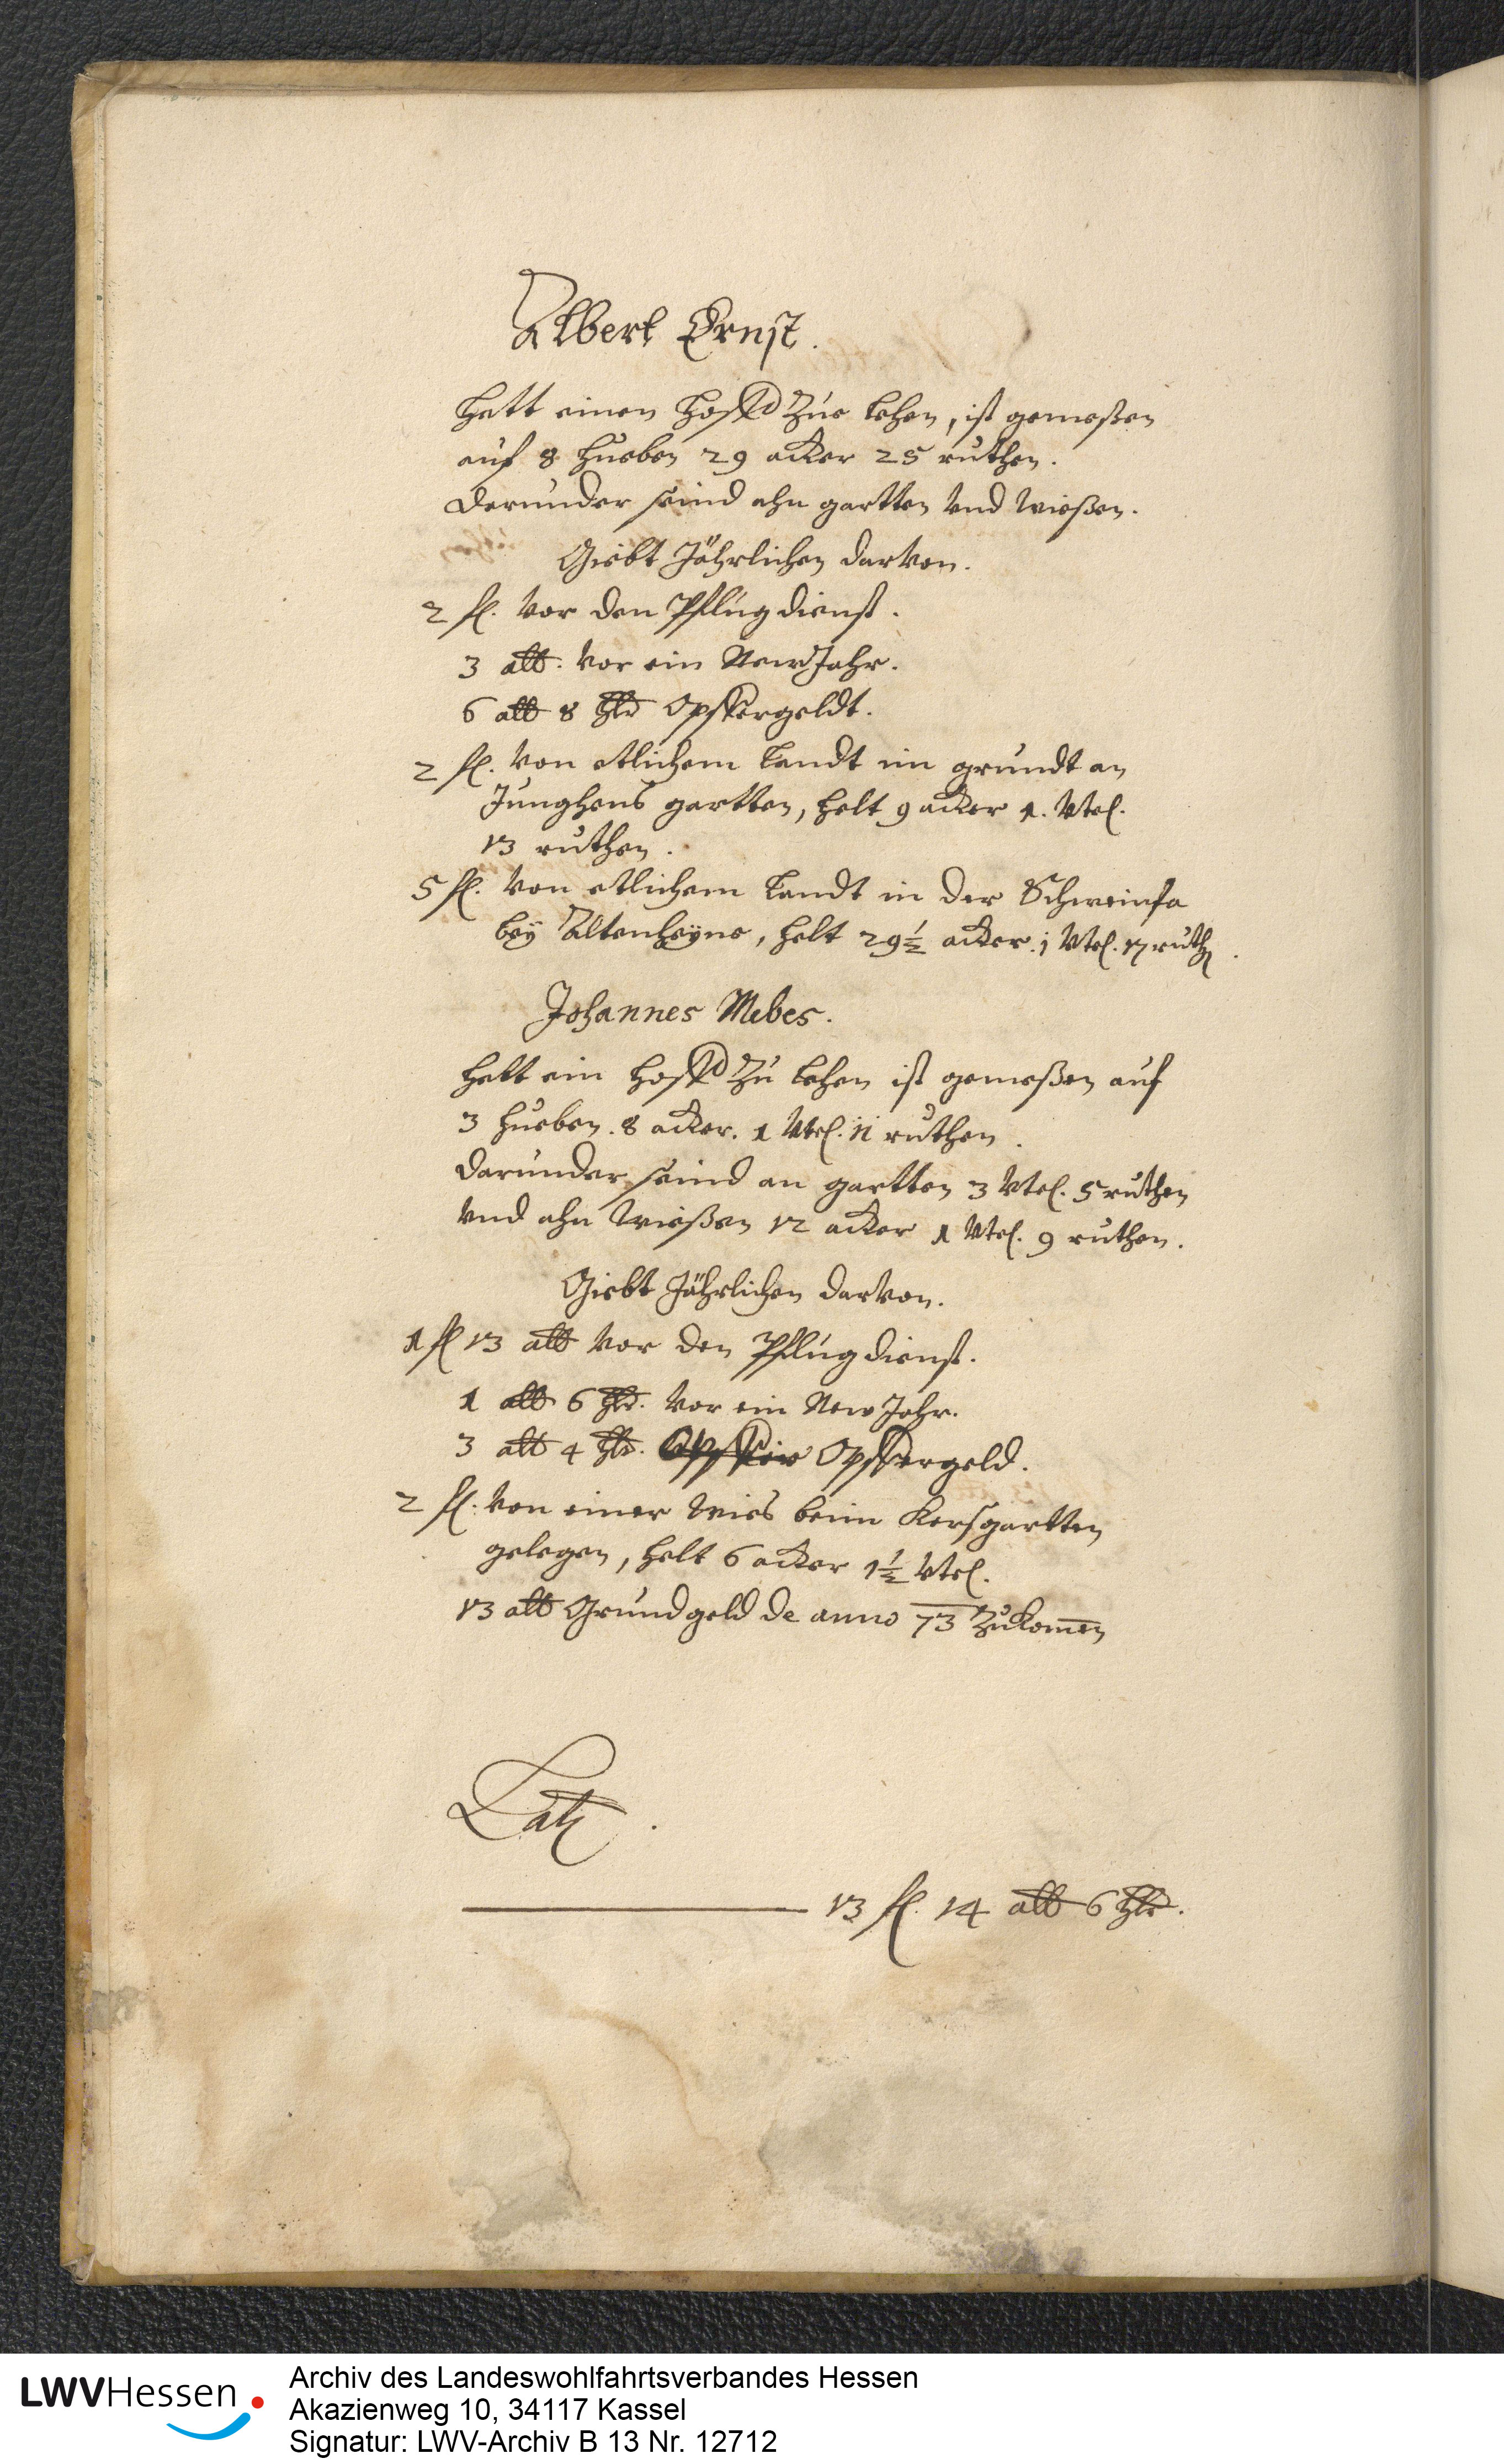 Albert Ernst.
Hatt einen Hoff Zue Lehen, ist gemeßen
auf 8 Hueben 29 acker 25 ruthen.
Darunder seind ahn gartten vnd Wießen.
Giebt Jährlichen darvon.
2 fl. vor den Pflug dienst.
3 alb. vor ein New Jahr.
6 alb 8 hlr Opffergeldt.
2 fl. von etlichem Landt im grundt an
Junghens gartten, helt 9 acker 1. vtel.
13 ruthen.
5 fl. von etlichem Landt in der Schweinfa
bey Altenheyne, helt 29½ acker 1 vtel. 17 ruth.
Johannes Mebes.
Hatt ein Hoff Zu Lehen ist gemeßen auf
3 Hueben. 8 acker. 1 vtel. 11 ruthen.
Darunder seind an gartten 3 vtel. 5 ruthen
vnd ahn Wießen 12 acker 1 vtel. 9 ruthen.
Giebt Jährlichen darvon.
1 fl 13 alb vor den Pflug dienst.
1 alb 6 hlr. vor ein New Jahr.
3 alb 4 hlr. Opffergeld.
2 fl. von einer Wies beim Kersgartten
gelegen, helt 6 acker 1½ vtel.
13 alb Grundgeld de anno 73 Zukomen
Lat.
13 fl. 14 alb 6 hlr.
LWVHessen
Archiv des Landeswohlfahrtsverbandes Hessen
Akazienweg 10, 34117 Kassel
Signatur: LWV-Archiv B 13 Nr. 12712